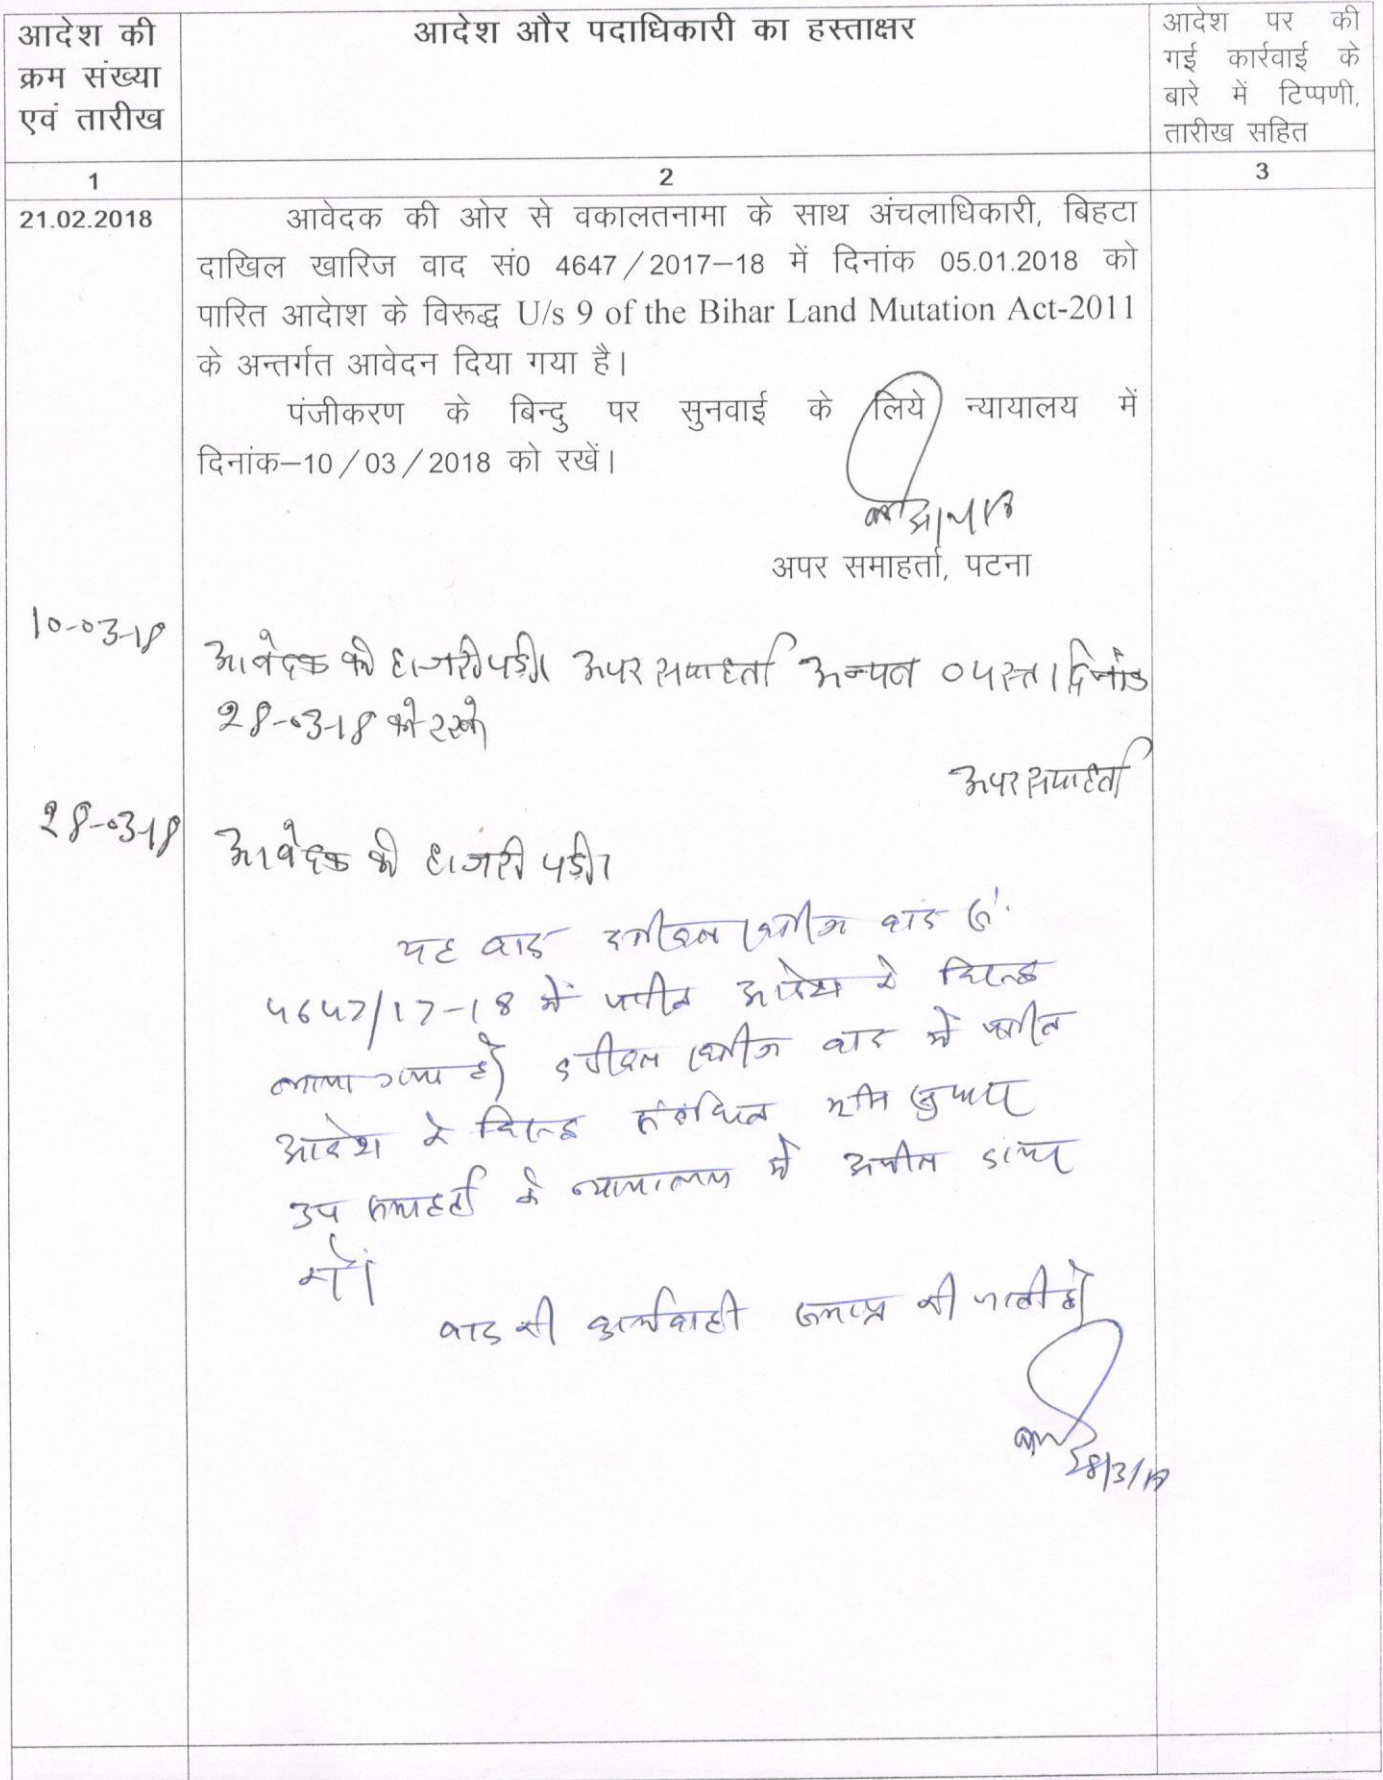 आदेश की
क्रम संख्या
एवं तारीख
आदेश और पदाधिकारी का हस्ताक्षर
आदेश पर की
गई कार्रवाई के
बारे में टिप्पणी,
तारीख सहित
1
2
3
21.02.2018
आवेदक की ओर से वकालतनामा के साथ अंचलाधिकारी, बिहटा
दाखिल खारिज वाद सं0 4647/2017–18 में दिनांक 05.01.2018 को
पारित आदेाश के विरूद्ध U/s 9 of the Bihar Land Mutation Act-2011
के अन्तर्गत आवेदन दिया गया है।
पंजीकरण के बिन्दु पर सुनवाई के लिये न्यायालय में
दिनांक–10/03/2018 को रखें।
अपर समाहर्ता, पटना
10-03-18
आवेदक की हाजरी पड़ी। अपर समाहर्ता अन्यत्र व्यस्त। दिनांक
28-03-18 को रखें
अपर समाहर्ता
28-03-18
आवेदक की हाजरी पड़ी।
यह वाद दाखिल खारिज वाद सं.
4647/17-18 में पारित आदेश के विरूद्ध
लाया गया है। दाखिल खारिज वाद में पारित
आदेश के विरूद्ध संबंधित भूमि सुधार
उप समाहर्ता के न्यायालय में अपील दायर
करें।
वाद की कार्यवाही समाप्त की जाती है।
28/3/18